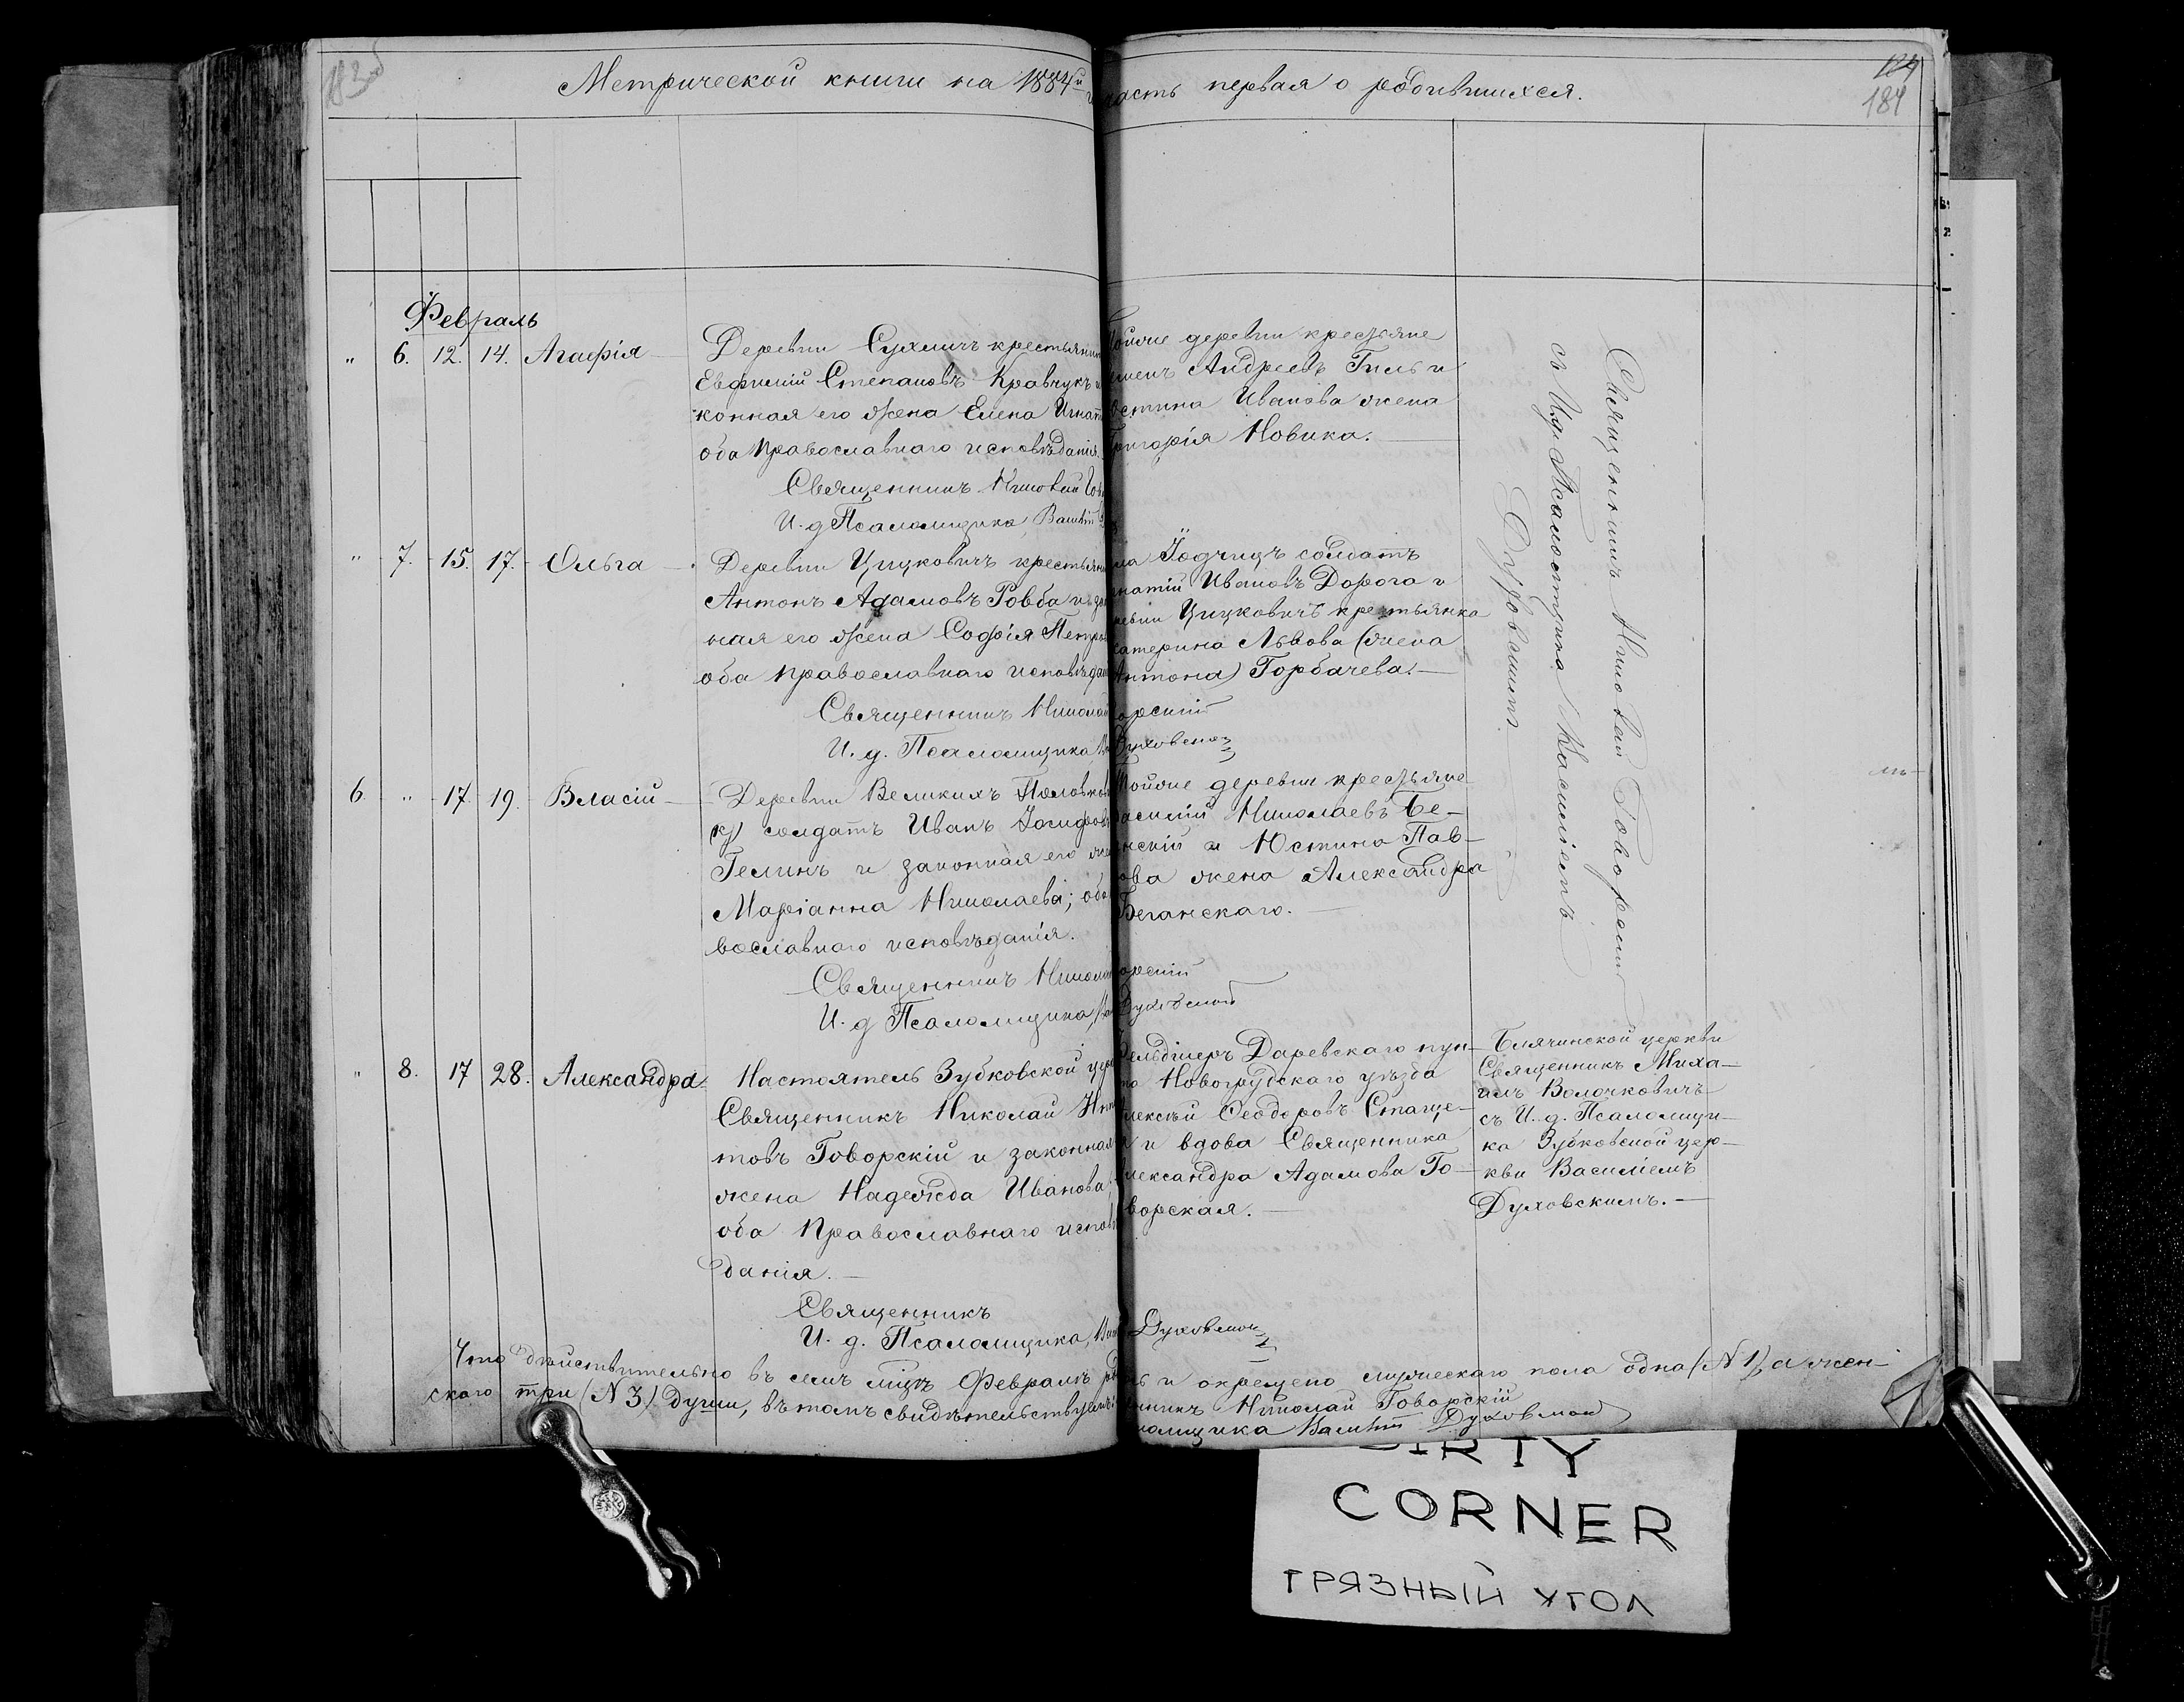 183об
Метрической книги на 1884й
часть первая о родившихся.
184
Февраль
" 6. 12. 14. Агафія
Деревни Сухличъ крестьянинъ
Евфимій Степановъ Кравчукъ и
конная его жена Елена Игнат
оба православнаго исповѣданія.
Священникъ Николай Гов
И. д Псаломщика Василій
тойже деревни крестьяне
Андреевъ Гиль и
Иванова жена
Григорія Новика.
" 7. 15. 17. Ольга
Деревни Цицковичъ крестьянин
Антонъ Адамовъ Ровба и зак
ная его жена Софія Петров
оба православнаго исповѣдан
Священникъ Николай
И. д. Псаломщика
Іодчицъ солдатъ
натій Ивановъ Дорога и
ревни Цицковичъ крестьянка
катерина Львова (жена
Антона) Горбачева.
орскій
Духовской
6. " 17 19. Власій
Деревни Великихъ
солдатъ Иванъ Іосифов
Гелинъ и законная его же
Маріанна Николаева; оба
вославнаго исповѣданія.
Священникъ Никола
И. д Псаломщика
тойже деревни крестьяне
Василій Николаевъ Бе-
анскій и Юстина Пав-
лова жена Александра
Беганскаго.
орскій
Духовской
Священникъ Николай Говорскій
съ И. д. Псаломщика Василіемъ
Духовскимъ
" 8. 17 28. Александра
Настоятель Зубковской церк
Священникъ Николай Игна
товъ Говорскій и законная
жена Надежда Иванова;
оба православнаго исповѣ
данія.
Священникъ
И. д. Псаломщика, Вас
Фельдшеръ Даревскаго пун-
Новогрудскаго уѣзда
Алексѣй Ѳеодоровъ
и вдова Священника
Александра Адамова Го-
ворская.
Духовской
Блячинской церкви
Священникъ Миха-
илъ Волочковичъ
съ И. д. Псаломщи-
ка Зубковской цер-
кви Василіемъ
Духовскимъ.
Что дѣйствительно въ семъ мцѣ Февралѣ ро
сь и окрещено мужескаго пола одна (N 1), а жен-
скаго три (N 3) души, въ томъ свидѣтельствуемъ:
Священникъ Николай Говорскій
Псаломщика Василій Духовской
DIRTY
CORNER
ГРЯЗНЫЙ УГОЛ